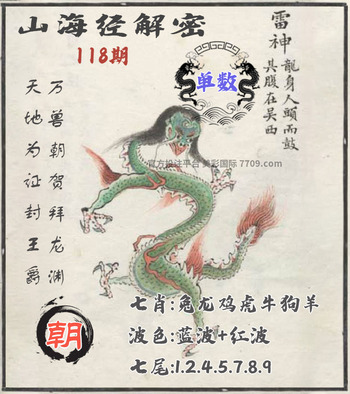 山海经解密
118期
雷神
龍身人頭而鼓
其腹在吴西
单数
万兽朝贺拜龙渊
天地为证封王爵
官方投注平台 美彩国际 7709.com
朝
七肖:兔龙鸡虎牛狗羊
波色:蓝波+红波
七尾:1.2.4.5.7.8.9